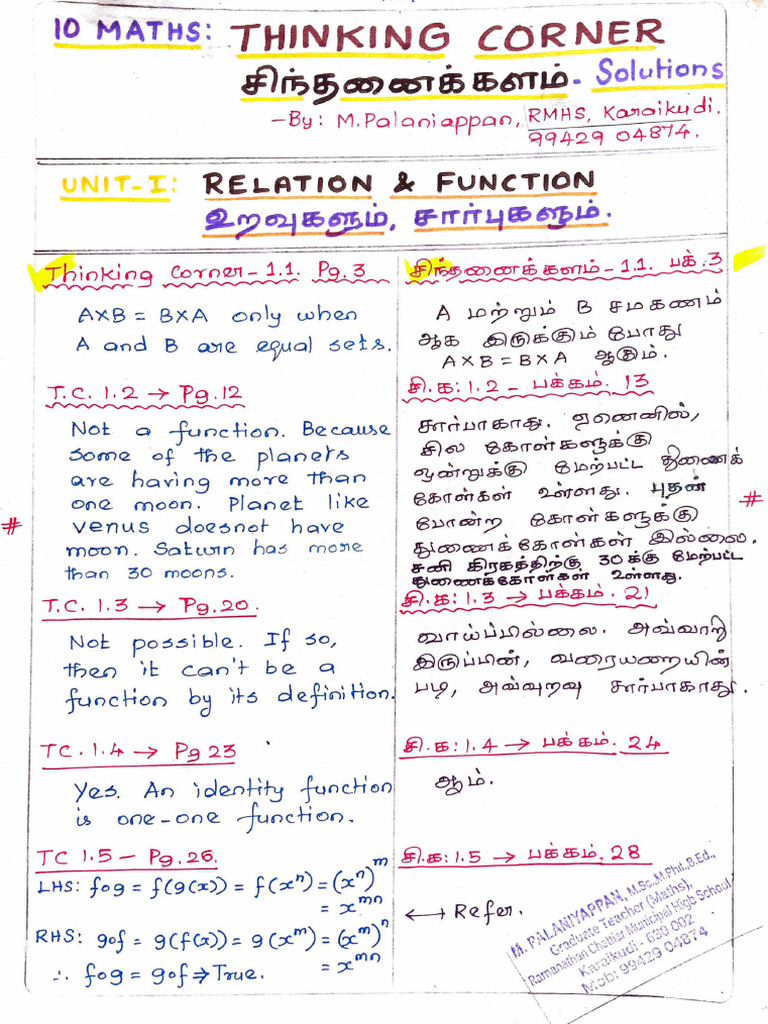 10 MATHS: THINKING CORNER
சிந்தனைக்களம் - Solutions
- By: M. Palaniappan, RMHS, Karaikudi.
99429 04874.
UNIT-I: RELATION & FUNCTION
உறவுகளும், சார்புகளும்.
Thinking Corner - 1.1. Pg. 3
A×B = B×A only when
A and B are equal sets.
T.C. 1.2 → Pg. 12
Not a function. Because
some of the planets
are having more than
one moon. Planet like
# venus doesnot have
moon. Saturn has more
than 30 moons.
T.C. 1.3 → Pg. 20.
Not possible. If so,
then it can't be a
function by its definition.
TC. 1.4 → Pg 23
Yes. An identity function
is one-one function.
TC 1.5 – Pg. 26.
LHS: fog = f(g(x)) = f(xⁿ) = (xⁿ)ᵐ
= xᵐⁿ
RHS: gof = g(f(x)) = g(xᵐ) = (xᵐ)ⁿ
= xᵐⁿ
∴ fog = gof ⇒ True.
சிந்தனைக்களம் - 1.1. பக். 3
A மற்றும் B சமகணம்
ஆக இருக்கும் போது
A×B = B×A ஆகும்.
சி.க: 1.2 – பக்கம். 13
சார்பாகாது. ஏனெனில்,
சில கோள்களுக்கு
ஒன்றுக்கு மேற்பட்ட துணைக்
கோள்கள் உள்ளது. புதன் #
போன்ற கோள்களுக்கு
துணைக்கோள்கள் இல்லை.
சனி கிரகத்திற்கு 30க்கு மேற்பட்ட
துணைக்கோள்கள் உள்ளது.
சி.க: 1.3 → பக்கம். 21
வாய்ப்பில்லை. அவ்வாறு
இருப்பின், வரையறையின்
படி, அவ்வுறவு சார்பாகாது.
சி.க: 1.4 → பக்கம். 24
ஆம்.
சி.க: 1.5 → பக்கம். 28
↔ Refer.
M. PALANIYAPPAN, M.Sc., M.Phil., B.Ed.,
Graduate Teacher (Maths),
Ramanathan Chettiar Municipal High School
Karaikudi - 630 002
Mob: 99429 04874